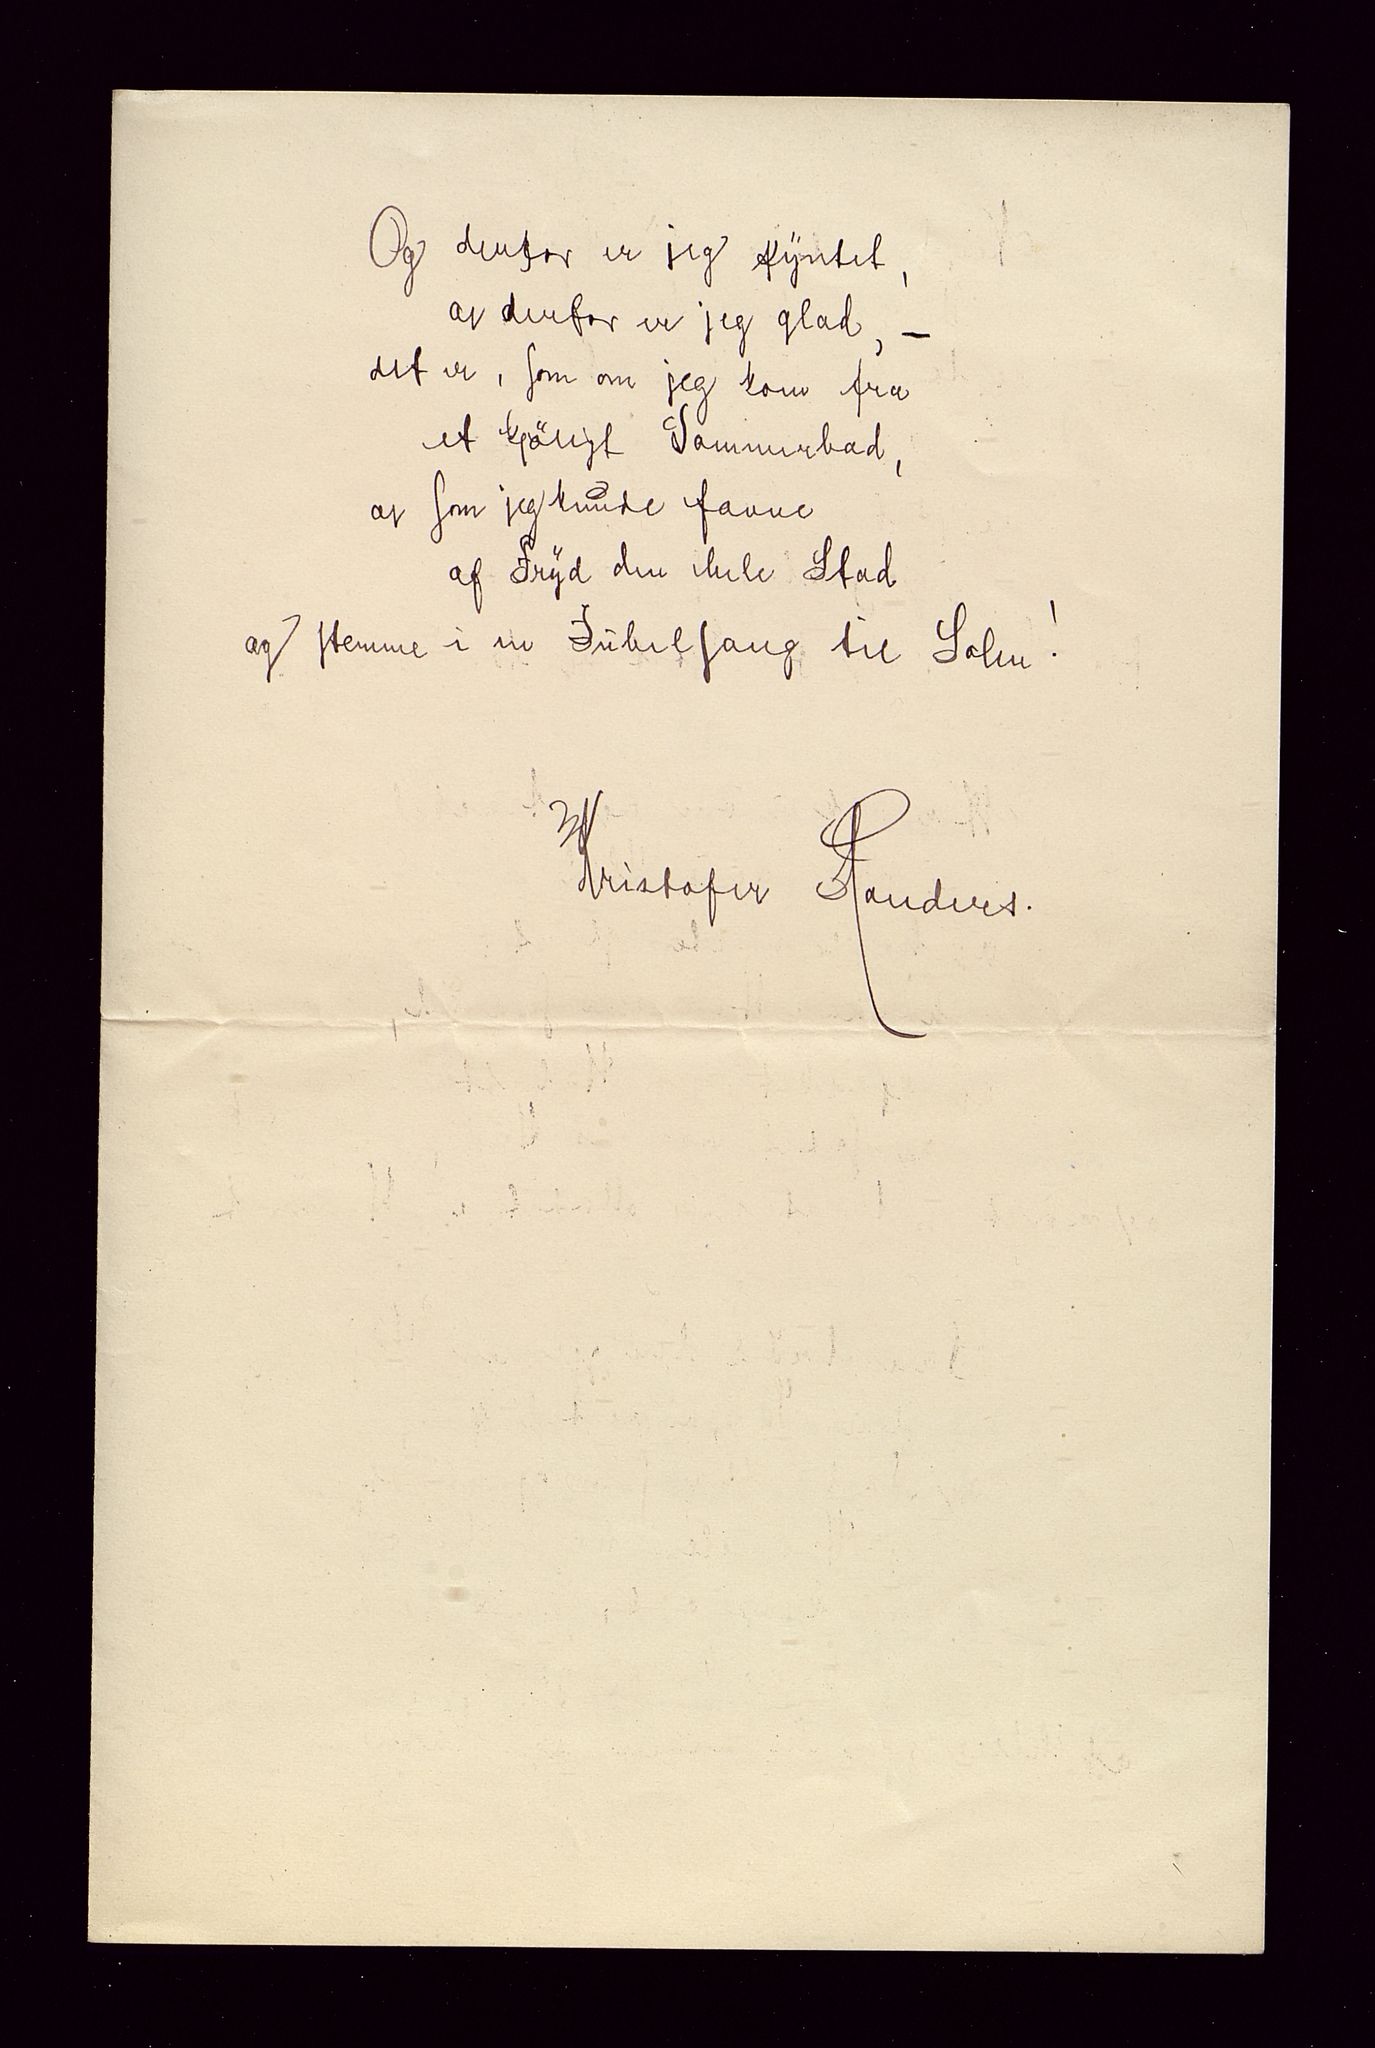 Og derfor er jeg kÿntet,
og derfor er jeg glad, —
det er, som om jeg kom fra
et kjöligt Sommerbad,
og som jeg kunde favne
af Frÿd den hele Stad
og stemme i en Jubelsang til Solen!
Kristofer Randers.